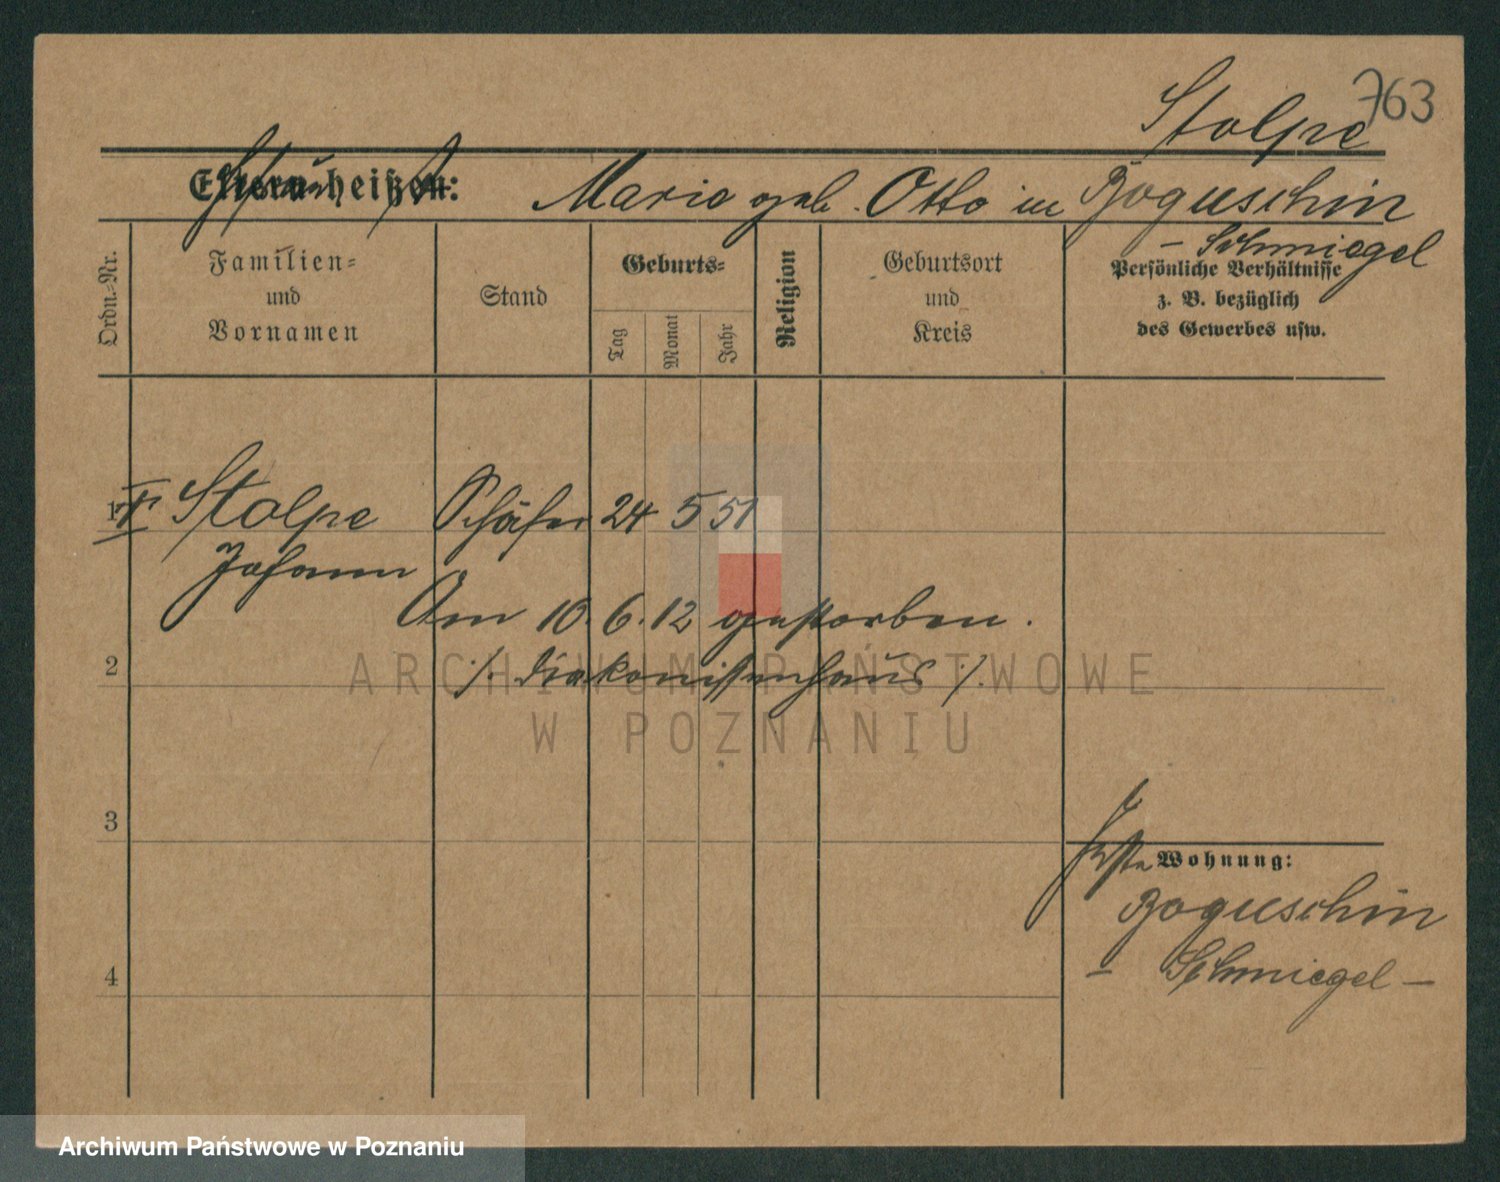 763
Stolpe
Eltern heißen: Marie geb. Otto in Boguschin
- Schmiegel
Ordn.-Nr.
Familien-
und
Vornamen
Stand
Geburts-
Tag
Monat
Jahr
Religion
Geburtsort
und
Kreis
Persönliche Verhältnisse
z. B. bezüglich
des Gewerbes usw.
1 Stolpe Schäfer 24 5 51
Johann
Am 10. 6. 12 gestorben.
2 ·/· Diakonissenhaus ·/·
ARCHIWUM PAŃSTWOWE
W POZNANIU
3
Wohnung:
Boguschin
- Schmiegel -
4
Archiwum Państwowe w Poznaniu